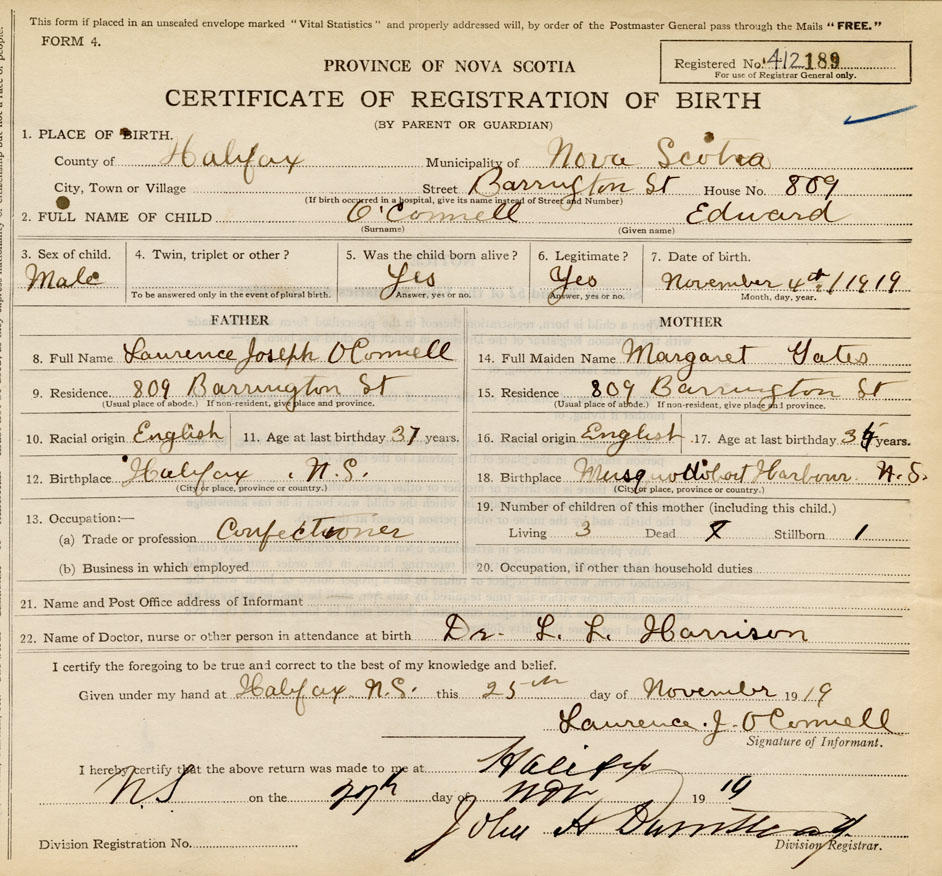 This form if placed in an unsealed envelope marked "Vital Statistics" and properly addressed will, by order of the Postmaster General pass through the Mails "FREE."
FORM 4.
Registered No. 412189
For use of Registrar General only.
PROVINCE OF NOVA SCOTIA
CERTIFICATE OF REGISTRATION OF BIRTH
(BY PARENT OR GUARDIAN)
1. PLACE OF BIRTH.
County of Halifax Municipality of Nova Scotia
City, Town or Village Street Barrington St House No. 809
(If birth occurred in a hospital, give its name instead of Street and Number)
2. FULL NAME OF CHILD O'Connell Edward
(Surname) (Given name)
3. Sex of child. 4. Twin, triplet or other? 5. Was the child born alive? 6. Legitimate? 7. Date of birth.
Male Yes Yes November 4th/1919
To be answered only in the event of plural birth. Answer, yes or no. Answer, yes or no. Month, day, year.
FATHER MOTHER
8. Full Name Laurence Joseph O'Connell 14. Full Maiden Name Margaret Yates
9. Residence 809 Barrington St 15. Residence 809 Barrington St
(Usual place of abode.) If non-resident, give place and province. (Usual place of abode.) If non-resident, give place and province.
10. Racial origin English 11. Age at last birthday 37 years. 16. Racial origin English 17. Age at last birthday years.
12. Birthplace Halifax N.S. 18. Birthplace Musquodoboit Harbour N.S.
(City or place, province or country.) (City or place, province or country.)
13. Occupation:— 19. Number of children of this mother (including this child.)
(a) Trade or profession Confectioner Living 3 Dead Stillborn 1
(b) Business in which employed 20. Occupation, if other than household duties
21. Name and Post Office address of Informant
22. Name of Doctor, nurse or other person in attendance at birth Dr. L. L. Harrison
I certify the foregoing to be true and correct to the best of my knowledge and belief.
Given under my hand at Halifax N.S. this 25th day of November 1919
Laurence J. O'Connell
Signature of Informant.
I hereby certify that the above return was made to me at Halifax
NS on the day of Nov 1919
John H
Division Registration No. Division Registrar.